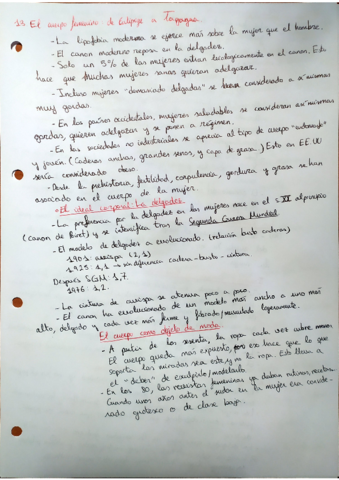 13. El cuerpo femenino de Calipige a Tanagra.
- La lipofobia moderna se ejerce más sobre la mujer que el hombre.
- El canon moderno reposa en la delgadez.
- Solo un 5% de las mujeres entran biológicamente en el canon. Esto
hace que muchas mujeres sanas quieran adelgazar.
- Incluso mujeres "demasiado delgadas" se han considerado a sí mismas
muy gordas.
- En los países occidentales, mujeres saludables se consideran así mismas
gordas, quieren adelgazar y se ponen a régimen.
- En las sociedades no industriales se aprecia al tipo de cuerpo
y jarrón. (Caderas anchas, grandes senos, y capa de grasa.) Esto en EEUU
sería considerado obeso.
- Desde la prehistoria, fertilidad, corpulencia, gordura y grasa se han
asociado en el cuerpo de la mujer.
El ideal corporal: La delgadez.
- La preferencia por la delgadez en las mujeres nace en el s XX al principio
(canon de Poiret) y se intensifica tras la Segunda Guerra Mundial.
- El modelo de delgadez a evolucionado. (relación busto cadera)
1901: avispa (2,1)
1925: 1,1 → sin diferencia cadera - busto - cintura
Después SGM: 1,7.
1976: 1,2.
- La cintura de avispa se atenua poco a poco.
- El canon ha evolucionado de un modelo más ancho a uno más
alto, delgado y cada vez más firme y fibrado/musculado ligeramente.
El cuerpo como objeto de moda.
- A partir de los sesenta, la ropa cada vez cubre menos.
El cuerpo queda más expuesto, por eso hace que lo que
soporta las miradas sea este y no la ropa. Esto lleva a
el "deber" de esculpirlo/modelarlo.
- En los 80, las revistas femeninas ya daban rutinas, recetas.
Cuando unos años antes el sudor en la mujer era conside-
rado grotesco o de clase baja.